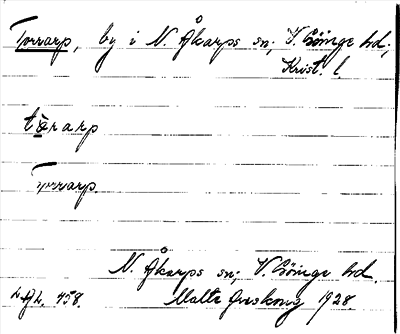 Torrarp, by i N. Åkarps sn; V. Göinge hd;
Krist. l.
tɑ̀rarp
Torrarp.
N. Åkarps sn; V. Göinge hd.
LAL, 458. Malte Areskoug 1928.